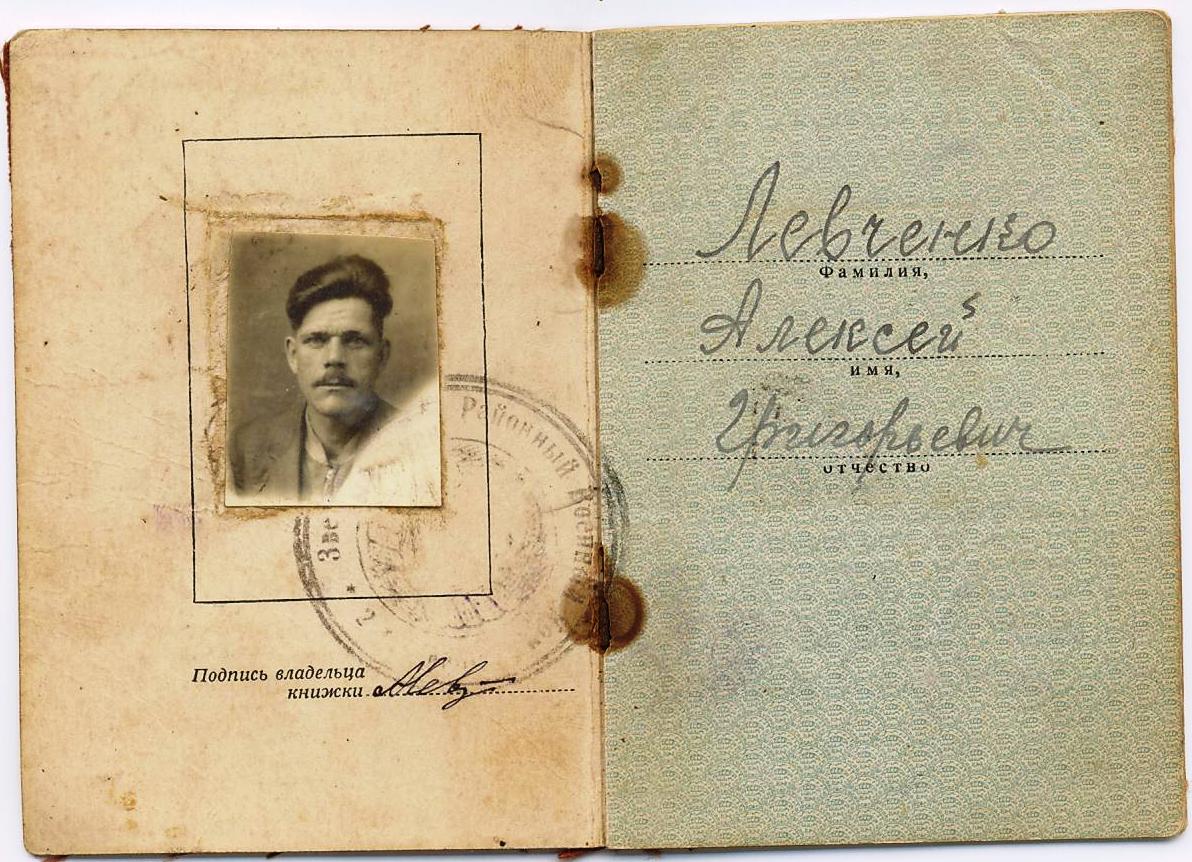 Районный Военный
Зве
* 2
Подпись владельца
книжки
Левченко
Фамилия,
Алексей
имя,
Григорьевич
отчество